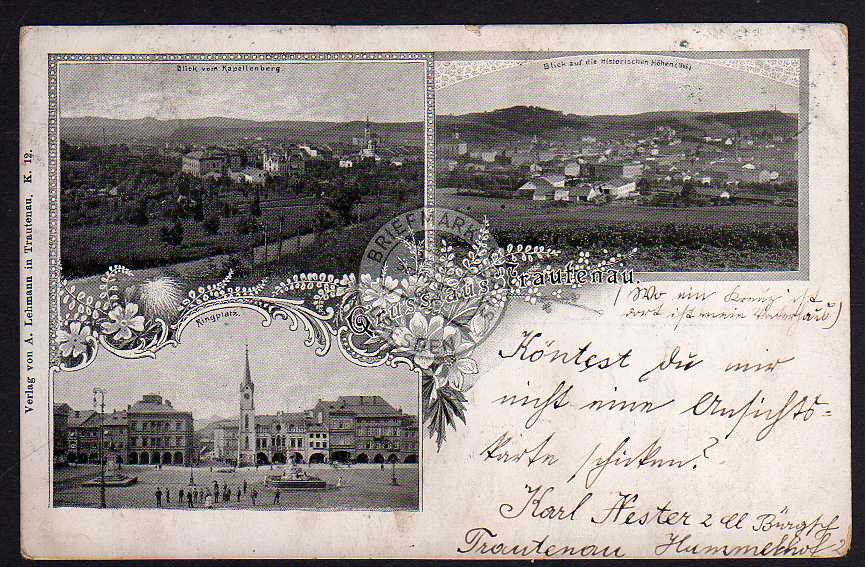 Blick vom Kapellenberg.
Blick auf die Historischen Höhen
Verlag von A. Lehmann in Trautenau. K. 12.
Gruss aus Trautenau.
Ringplatz.
(Wo ein Kreuz ist
dort ist mein Vaterhaus)
Köntest du mir
nicht eine Ansichts-
karte schicken?
Karl Nester 2 Cl Bürgsch
Trautenau Hummelhof 2
BRIEFMARKEN
DRESDEN